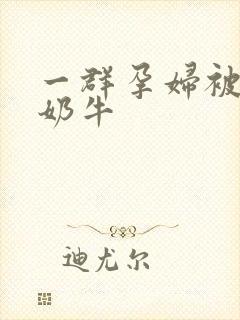 一群孕婦被
奶牛
迪尤尔